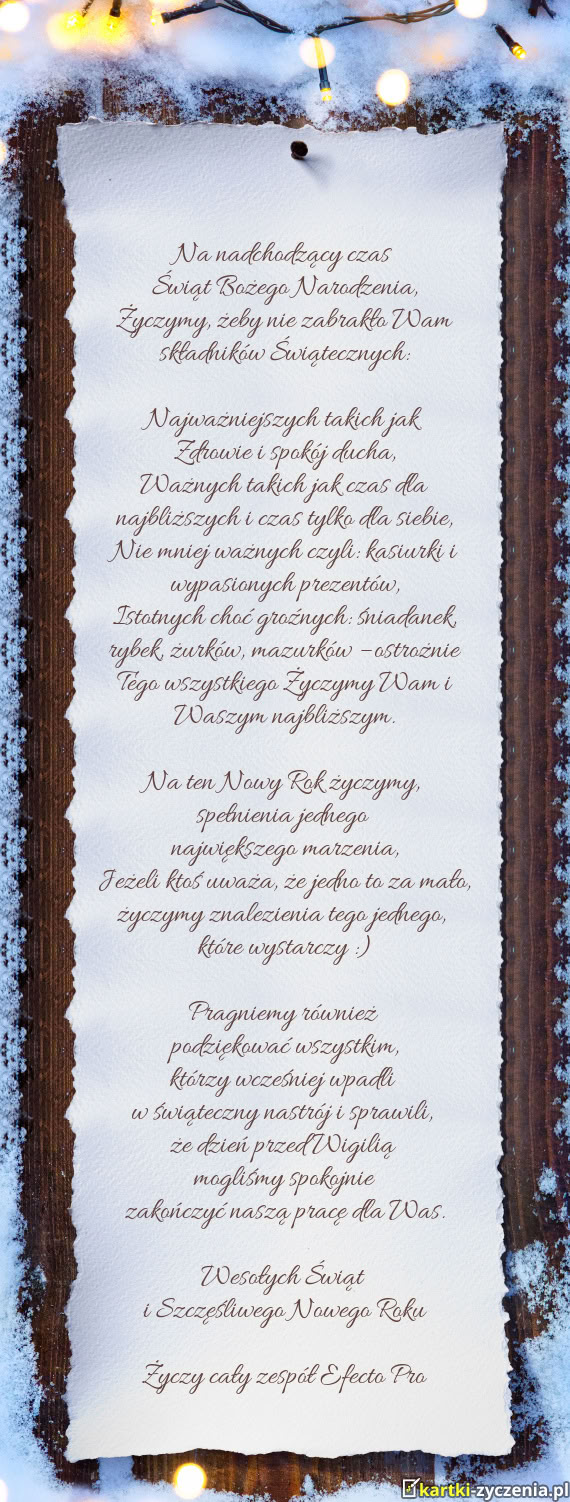 Na nadchodzący czas
Świąt Bożego Narodzenia,
Życzymy, żeby nie zabrakło Wam
składników Świątecznych:
Najważniejszych takich jak
Zdrowie i spokój ducha,
Ważnych takich jak czas dla
najbliższych i czas tylko dla siebie,
Nie mniej ważnych czyli: kasiurki i
wypasionych prezentów,
Istotnych choć groźnych: śniadanek,
rybek, żurków, mazurków – ostrożnie
Tego wszystkiego Życzymy Wam i
Waszym najbliższym.
Na ten Nowy Rok życzymy,
spełnienia jednego
największego marzenia,
Jeżeli ktoś uważa, że jedno to za mało,
życzymy znalezienia tego jednego,
które wystarczy :)
Pragniemy również
podziękować wszystkim,
którzy wcześniej wpadli
w świąteczny nastrój i sprawili,
że dzień przed Wigilią
mogliśmy spokojnie
zakończyć naszą pracę dla Was.
Wesołych Świąt
i Szczęśliwego Nowego Roku
Życzy cały zespół Efecto Pro
kartki-zyczenia.pl